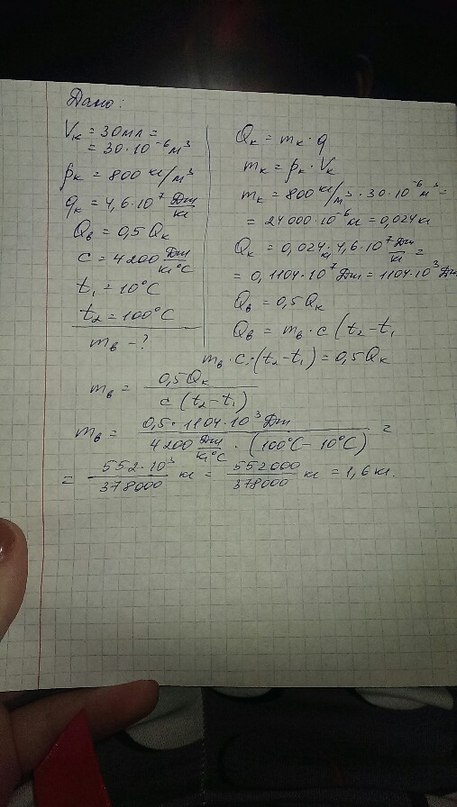 Дано:
Vк = 30мл =
= 30·10⁻⁶ м³
ρк = 800 кг/м³
qк = 4,6·10⁷ Дж/кг
Qв = 0,5 Qк
c = 4200 Дж/кг°C
t₁ = 10°C
t₂ = 100°C
mв - ?
Qк = mк · q
mк = ρк · Vк
mк = 800 кг/м³ · 30·10⁻⁶ м³ =
= 24000·10⁻⁶ кг = 0,024 кг
Qк = 0,024 кг · 4,6·10⁷ Дж/кг =
= 0,1104·10⁷ Дж = 1104·10³ Дж
Qв = 0,5 Qк
Qв = mв · c (t₂ - t₁
mв · c · (t₂ - t₁) = 0,5 Qк
mв = 0,5 Qк / c (t₂ - t₁)
mв = 0,5 · 1104·10³ Дж / 4200 Дж/кг°C · (100°C - 10°C) =
= 552·10³ / 378000 кг = 552000 / 378000 кг = 1,6 кг.